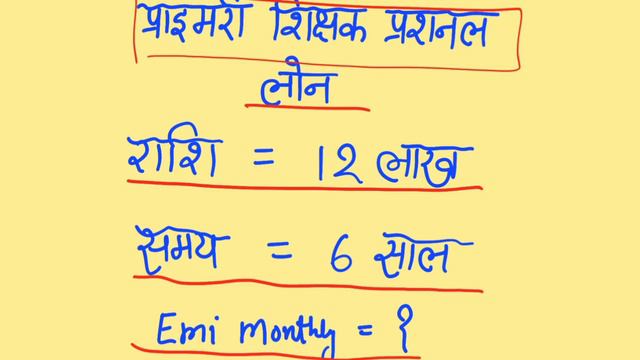 प्राइमरी शिक्षक प्रशनल
लोन
राशि = 12 लाख
समय = 6 साल
Emi monthly = ?